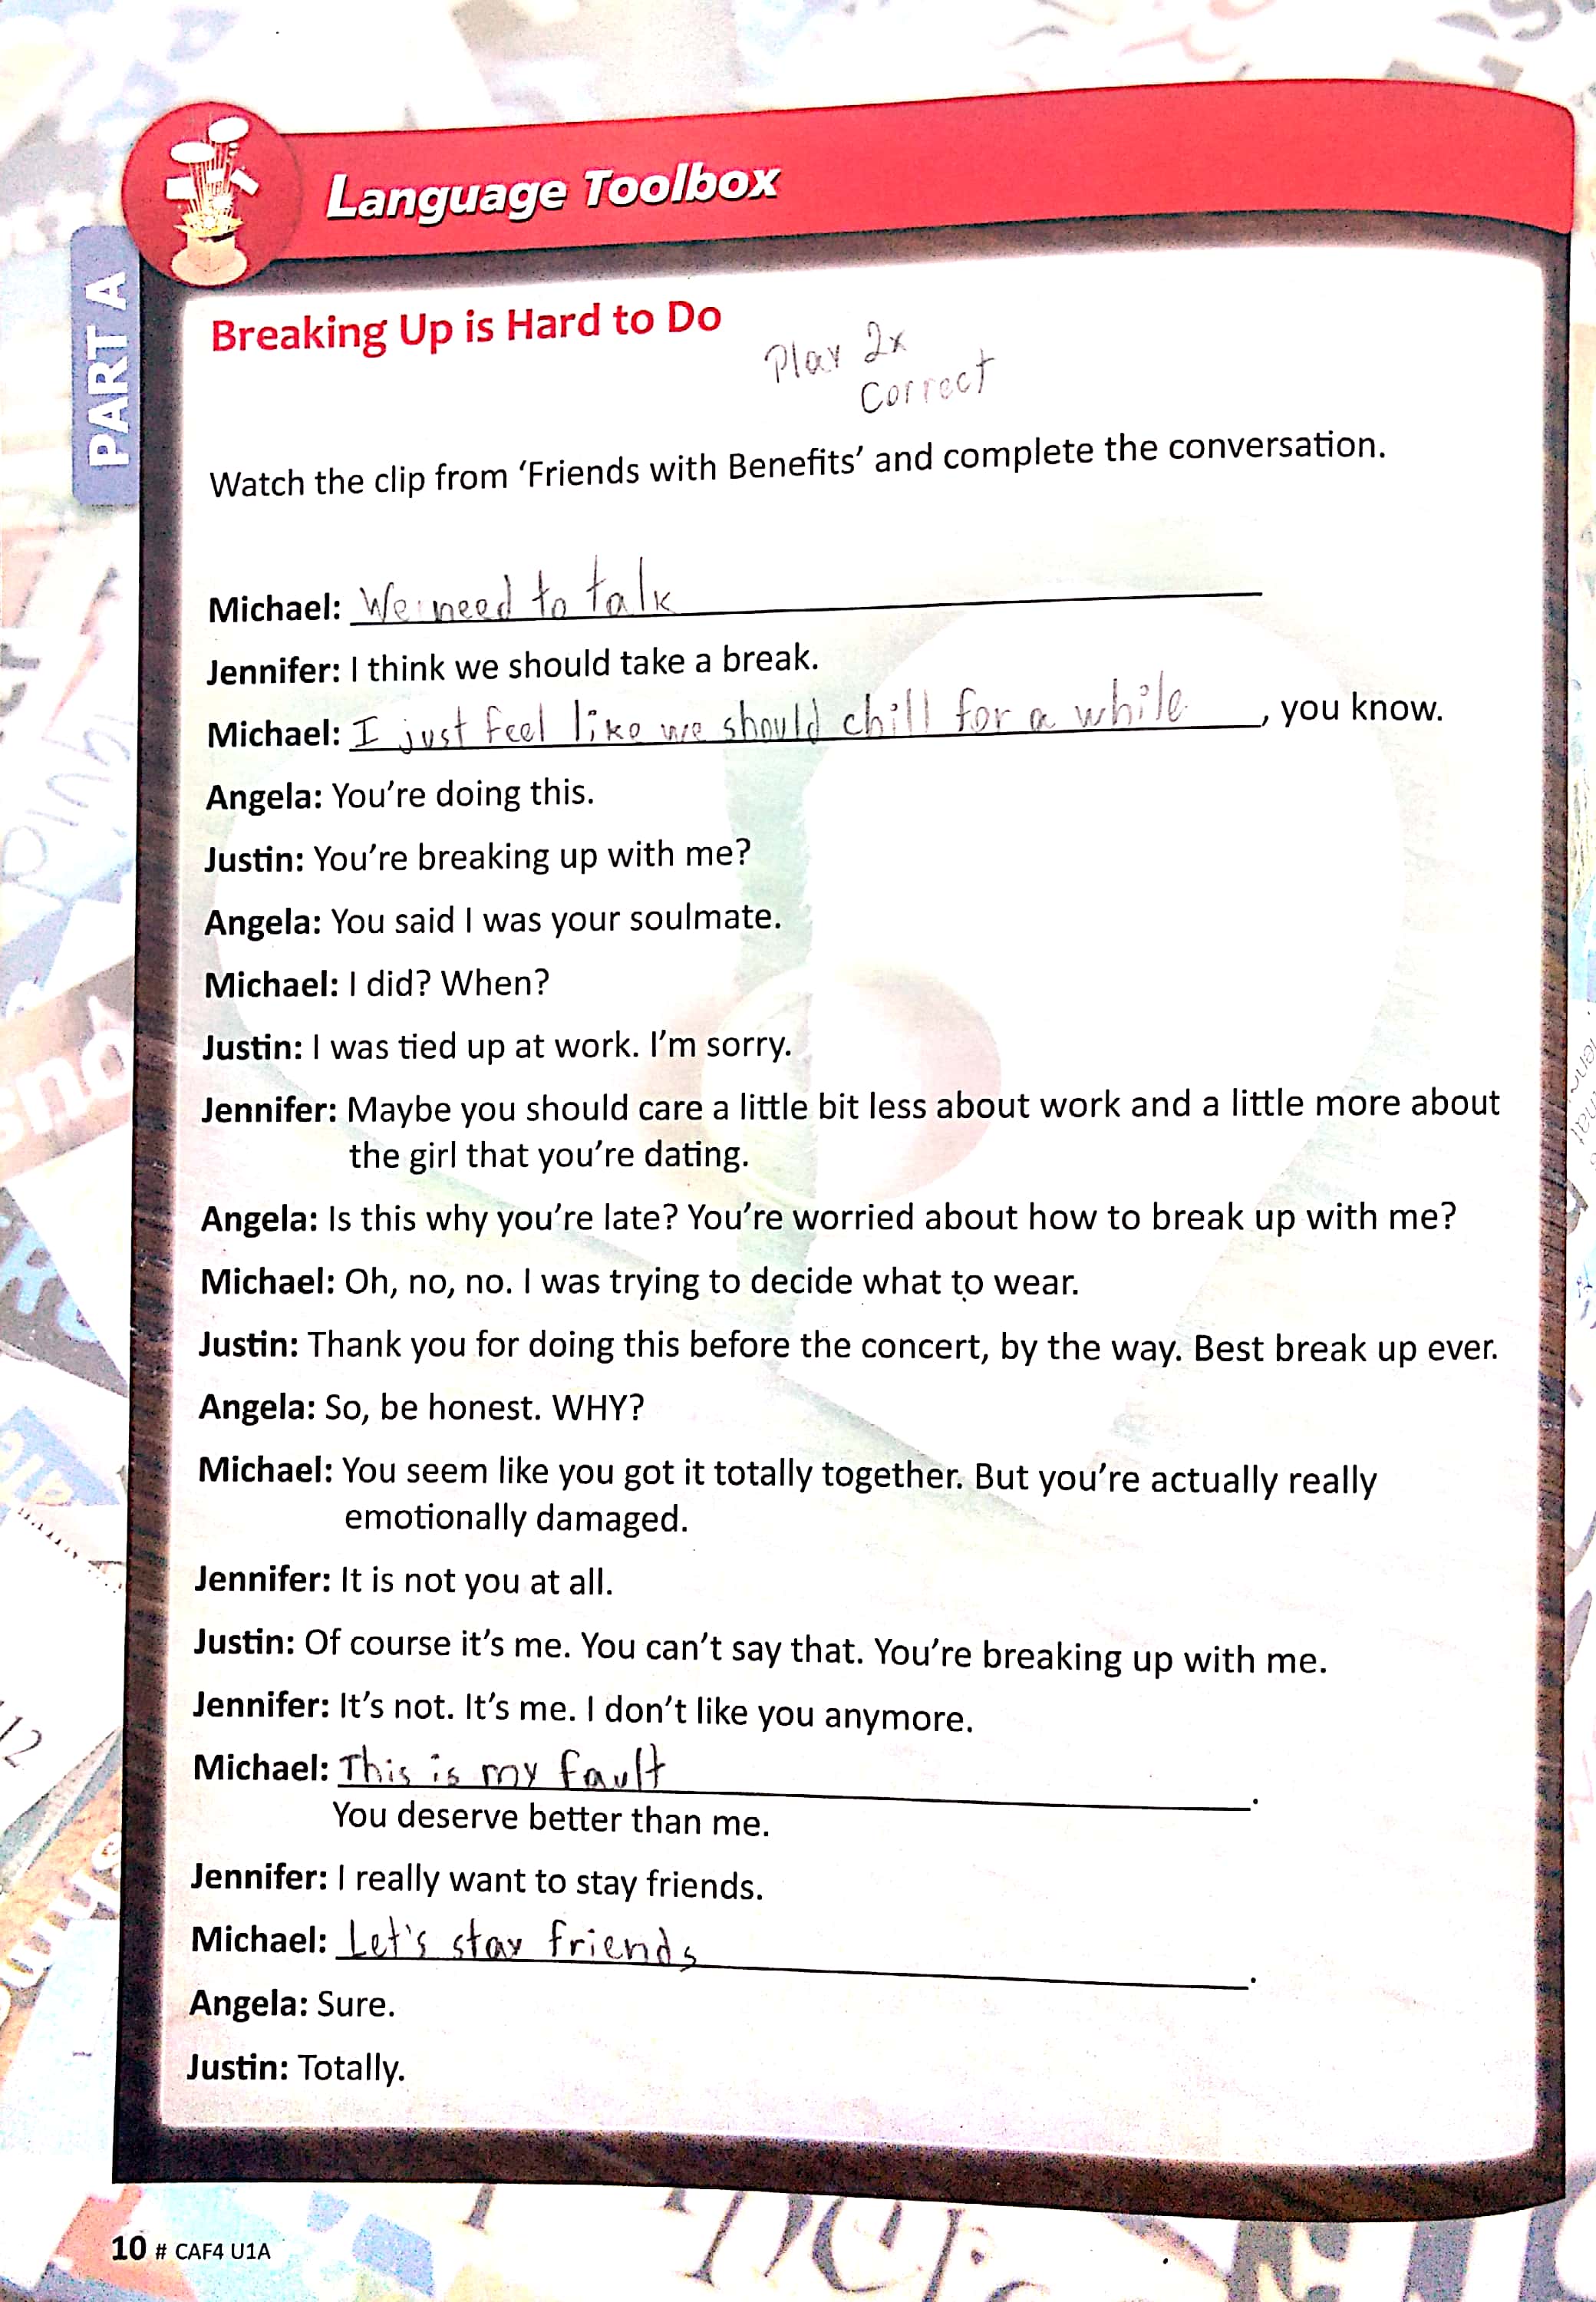 Language Toolbox
PART A
Breaking Up is Hard to Do
Play 2x
Correct
Watch the clip from ‘Friends with Benefits’ and complete the conversation.
Michael: We need to talk
Jennifer: I think we should take a break.
Michael: I just feel like we should chill for a while, you know.
Angela: You’re doing this.
Justin: You’re breaking up with me?
Angela: You said I was your soulmate.
Michael: I did? When?
Justin: I was tied up at work. I’m sorry.
Jennifer: Maybe you should care a little bit less about work and a little more about
the girl that you’re dating.
Angela: Is this why you’re late? You’re worried about how to break up with me?
Michael: Oh, no, no. I was trying to decide what to wear.
Justin: Thank you for doing this before the concert, by the way. Best break up ever.
Angela: So, be honest. WHY?
Michael: You seem like you got it totally together. But you’re actually really
emotionally damaged.
Jennifer: It is not you at all.
Justin: Of course it’s me. You can’t say that. You’re breaking up with me.
Jennifer: It’s not. It’s me. I don’t like you anymore.
Michael: This is my fault.
You deserve better than me.
Jennifer: I really want to stay friends.
Michael: Let's stay friends.
Angela: Sure.
Justin: Totally.
10 # CAF4 U1A